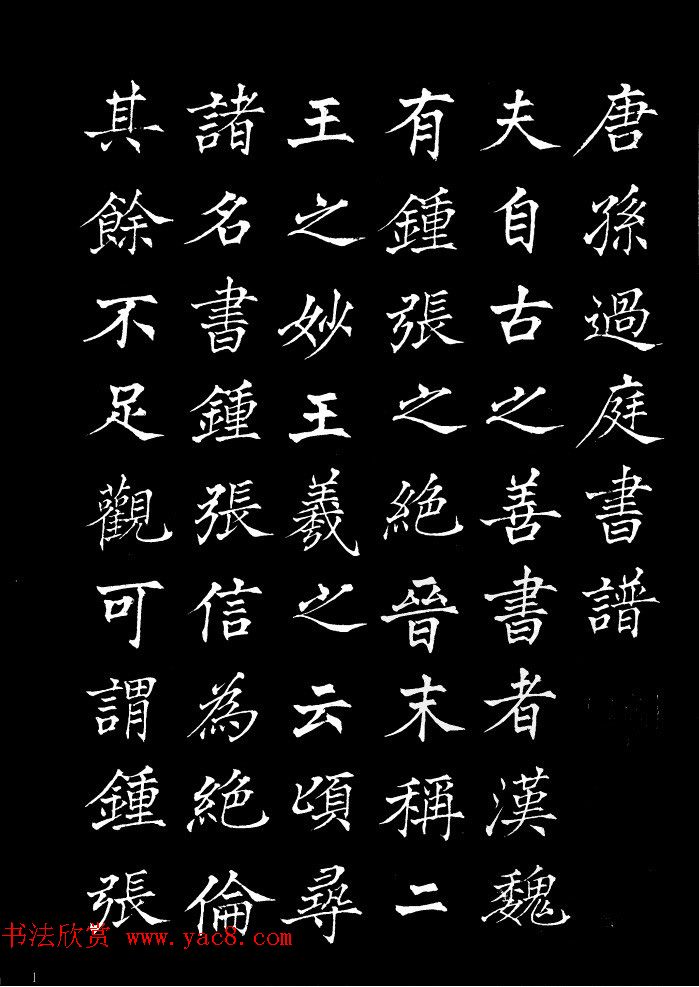 唐孫過庭書譜
夫自古之善書者漢魏
有鍾張之絕晉末稱二
王之妙王羲之云頃尋
諸名書鍾張信為絕倫
其餘不足觀可謂鍾張
书法欣赏 www.yac8.com
1